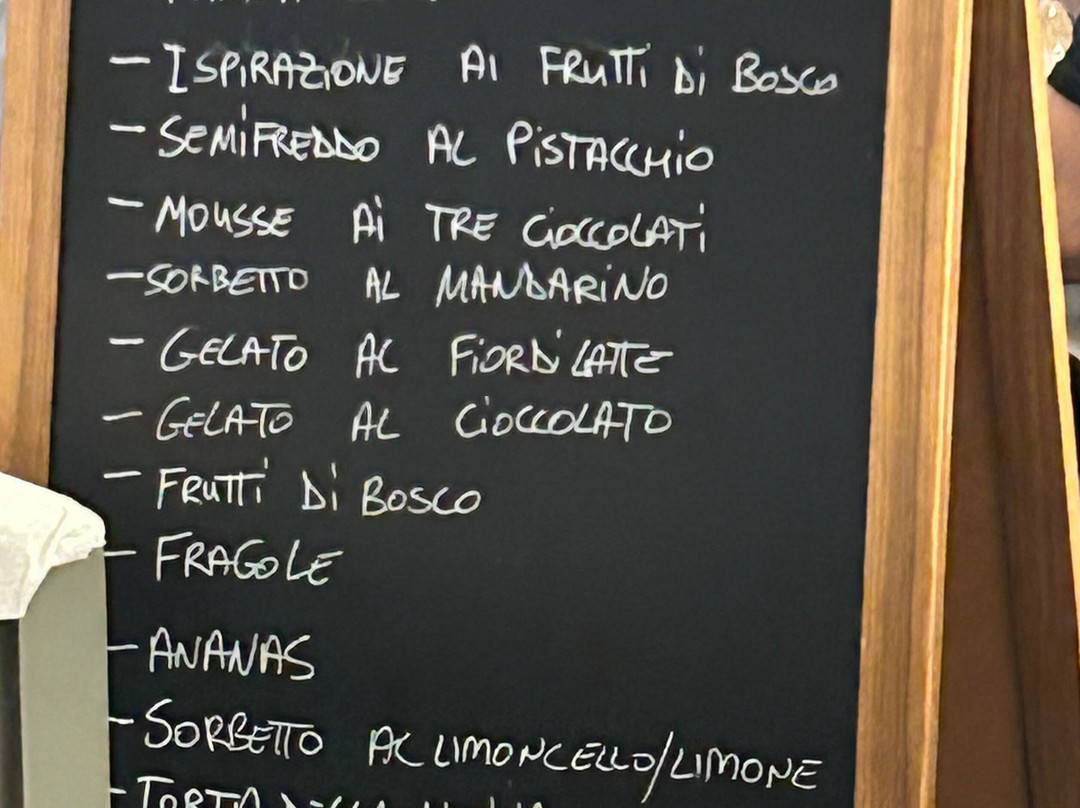 - ISPIRAZIONE AI FRUTTI DI BOSCO
- SEMIFREDDO AL PISTACCHIO
- MOUSSE AI TRE CIOCCOLATI
- SORBETTO AL MANDARINO
- GELATO AL FIORDILATTE
- GELATO AL CIOCCOLATO
- FRUTTI DI BOSCO
- FRAGOLE
- ANANAS
- SORBETTO AL LIMONCELLO/LIMONE
- TORTA